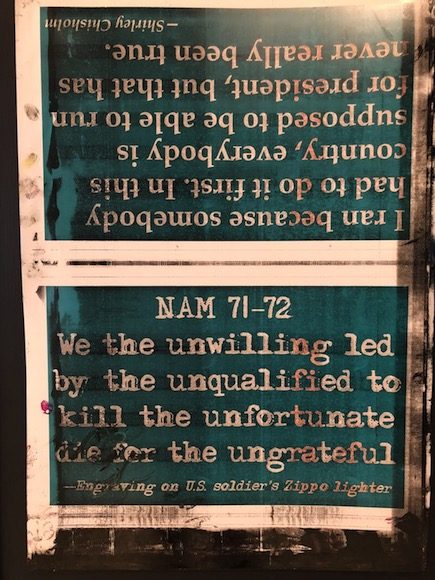 I ran because somebody
had to do it first. In this
country, everybody is
supposed to be able to run
for president, but that has
never really been true.
—Shirley Chisholm
NAM 71-72
We the unwilling led
by the unqualified to
kill the unfortunate
die for the ungrateful
—Engraving on U.S. soldier's Zippo lighter